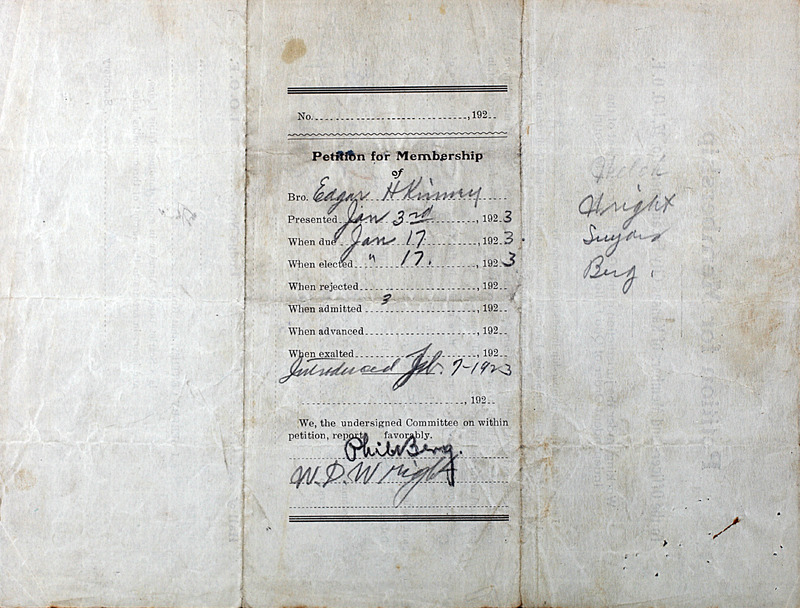 No. ,192
Petition for Membership
of
Bro. Edgar H Kinney
Presented Jan 3rd ,1923
When due Jan 17 ,1923.
When elected " 17. ,1923
When rejected ,192
When admitted 3 ,192
When advanced ,192
When exalted ,192
Introduced Feb. 7-1923
,192
We, the undersigned Committee on within
petition, report favorably.
Phil Berg.
W. D. Wright
Wright
Berg.